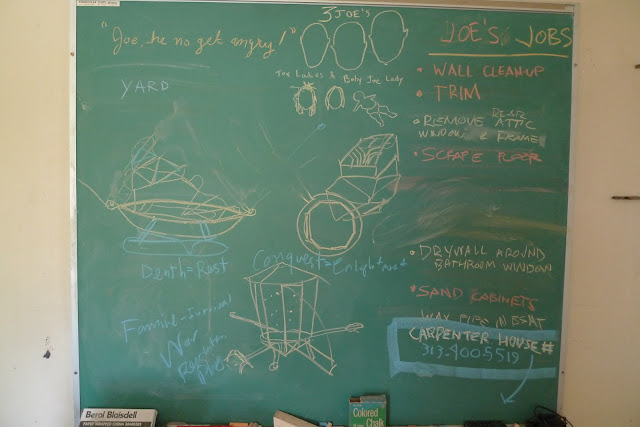 3 JOE'S
"Joe, he no get angry!"
JOE'S JOBS
YARD
Joe Ladies & Baby Joe Lady
• WALL CLEAN-UP
• TRIM
• REMOVE REAR ATTIC
WINDOW & FRAME
• SCRAPE FLOOR
Death = Rest
Conquest = Enlightment
• DRYWALL AROUND
BATHROOM WINDOW
• SAND CABINETS
Famine - Survival
War
IN BSMT
CARPENTER HOUSE #
313.400.5519
Berol Blaisdell
PAPER WRAPPED CHINA MARKERS
Colored
Chalk